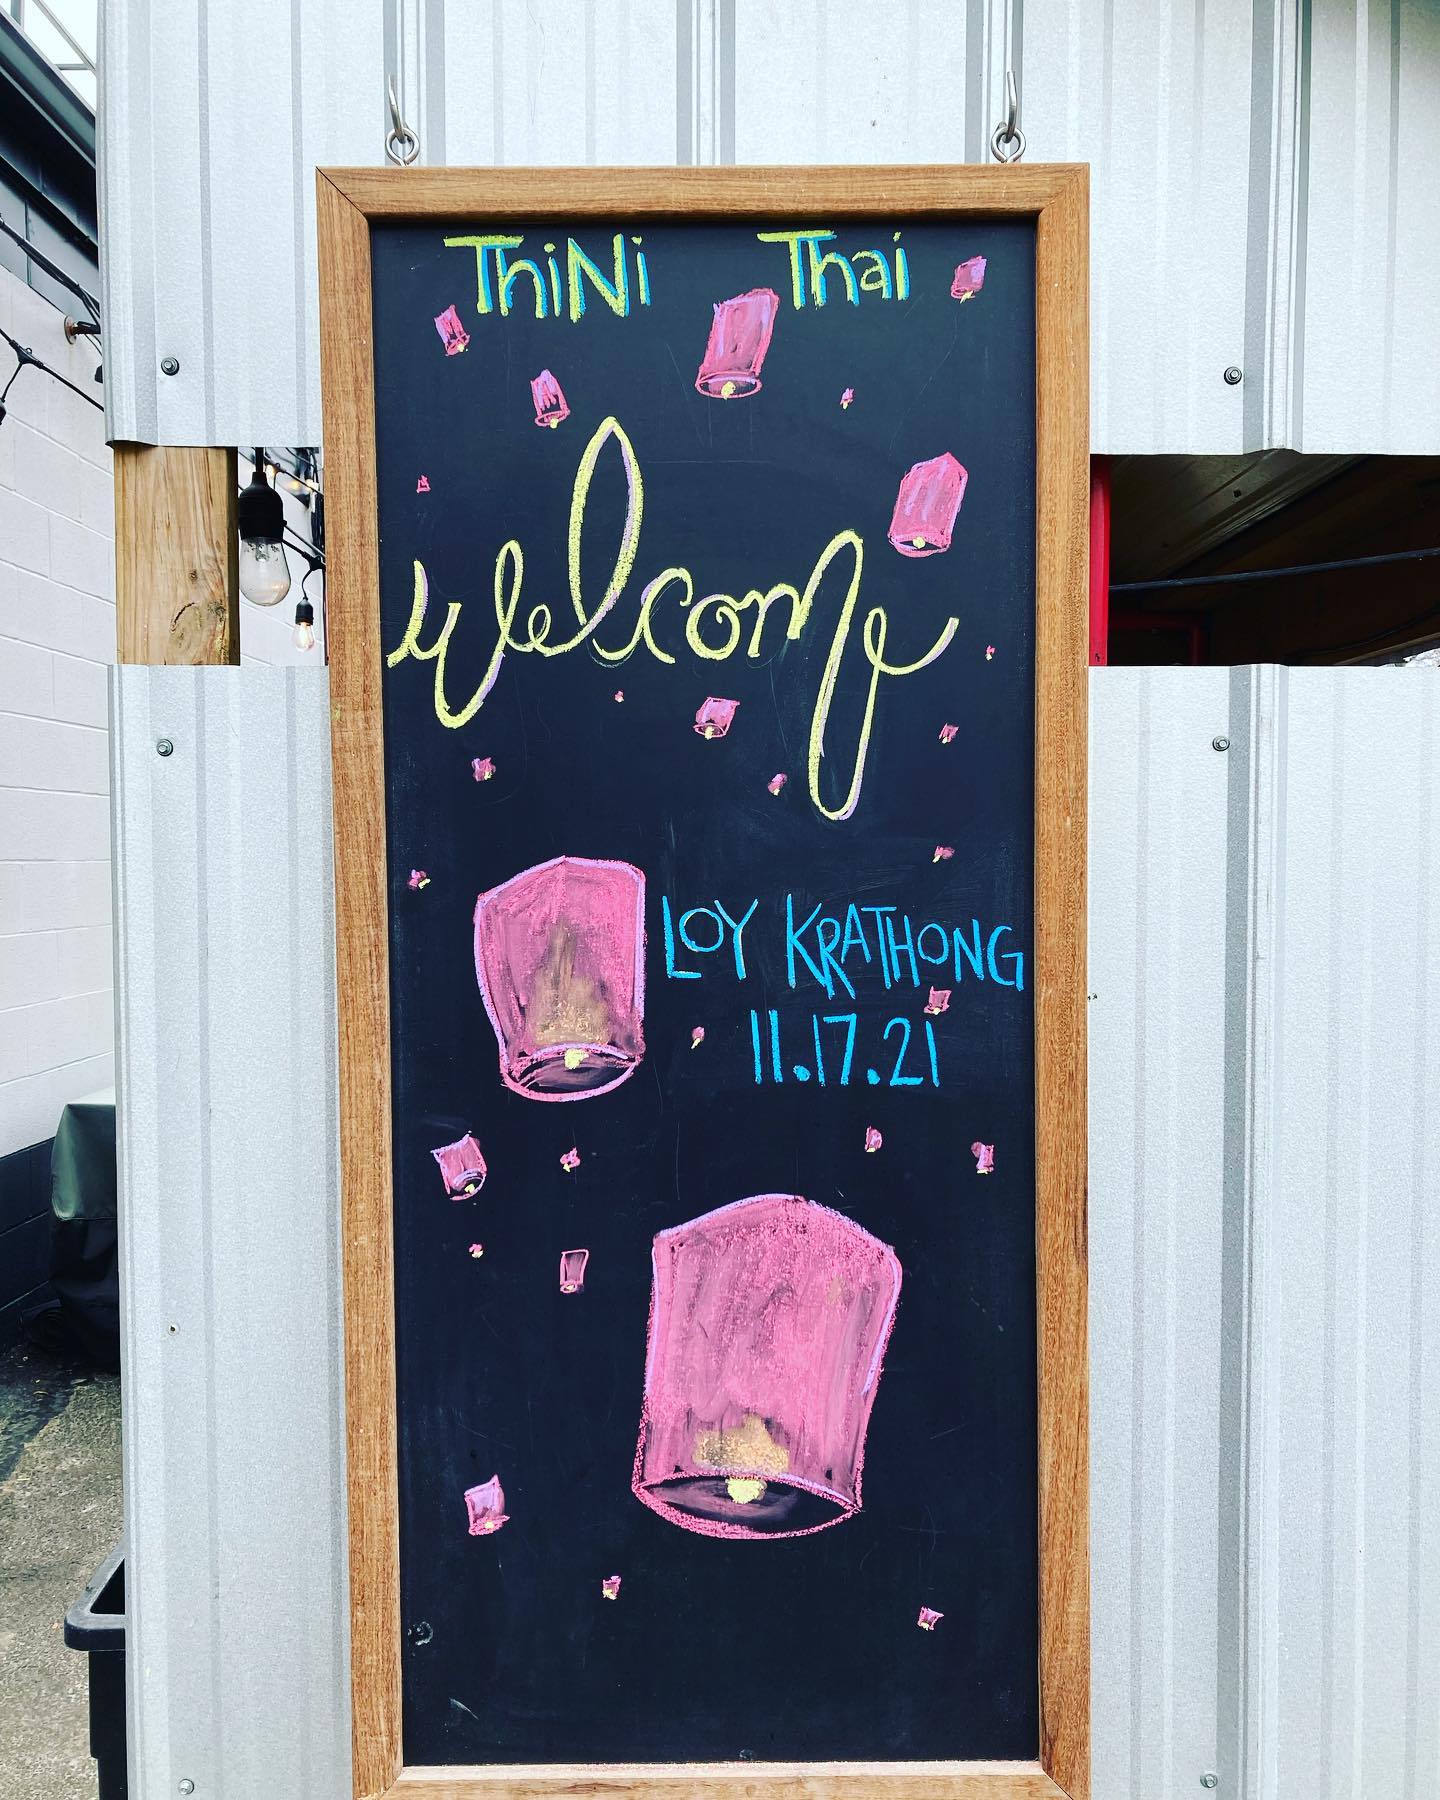 ThiNi Thai
welcome
LOY KRATHONG
11.17.21